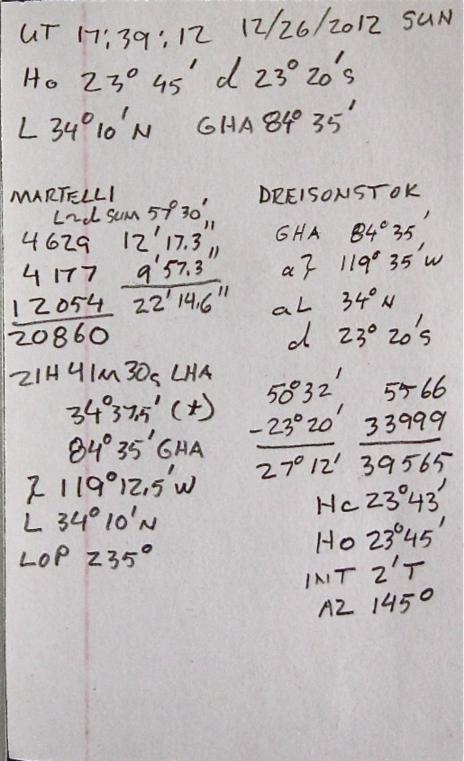 UT 17:39:12 12/26/2012 SUN
Ho 23° 45' d 23° 20's
L 34° 10'N GHA 84° 35'
MARTELLI
L~d SUM 57° 30'
4629 12' 17.3"
4177 9' 57.3"
12054 22' 14.6"
20860
21H 41m 30s LHA
34° 37.5' (+)
84° 35' GHA
λ 119° 12.5'W
L 34° 10'N
LOP 235°
DREISONSTOK
GHA 84° 35'
aλ 119° 35'W
aL 34° N
d 23° 20's
50° 32' 5566
-23° 20' 33999
27° 12' 39565
Hc 23° 43'
Ho 23° 45'
INT 2'T
AZ 145°